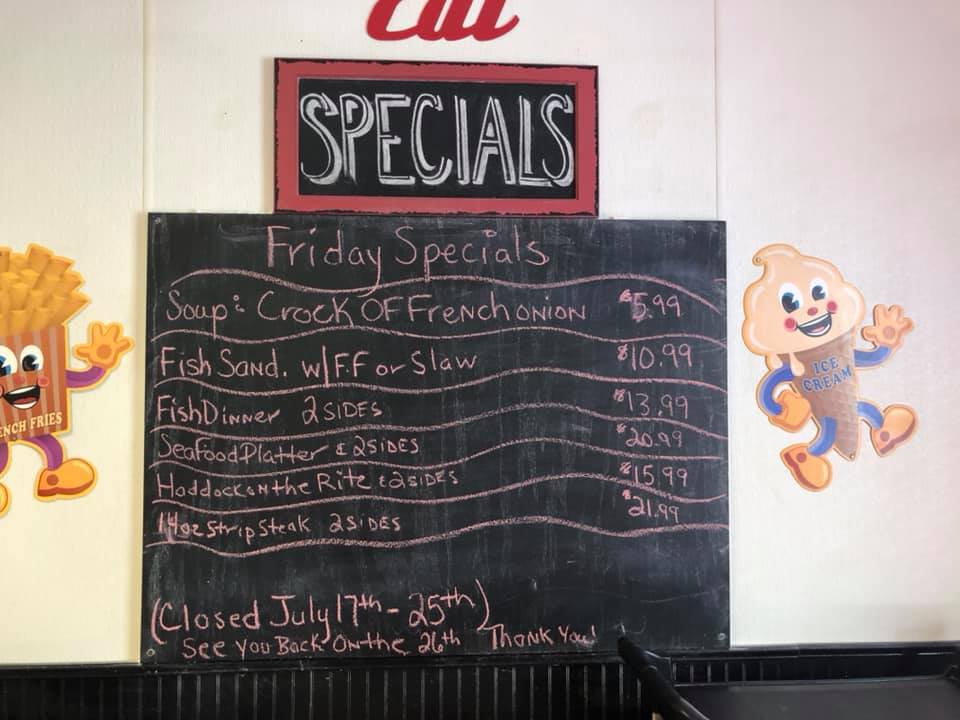 Eat
SPECIALS
Friday Specials
Soup: Crock OF French onion $5.99
Fish Sand. w/F.F or Slaw $10.99
Fish Dinner 2 SIDES $13.99
Seafood Platter & 2 SIDES $20.99
Haddock on the Ritz & 2 SIDES $15.99
14oz Strip Steak 2 SIDES $21.99
(Closed July 17th - 25th)
See You Back On the 26th Thank You!
ENCH FRIES
ICE
CREAM